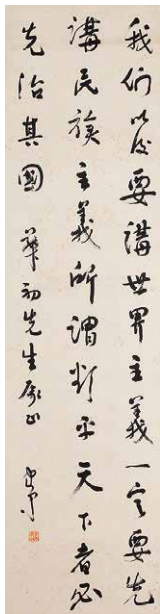 我們以後要講世界主義一定要先
講民族主義所謂欲平天下者必
先治其國　華初先生屬正